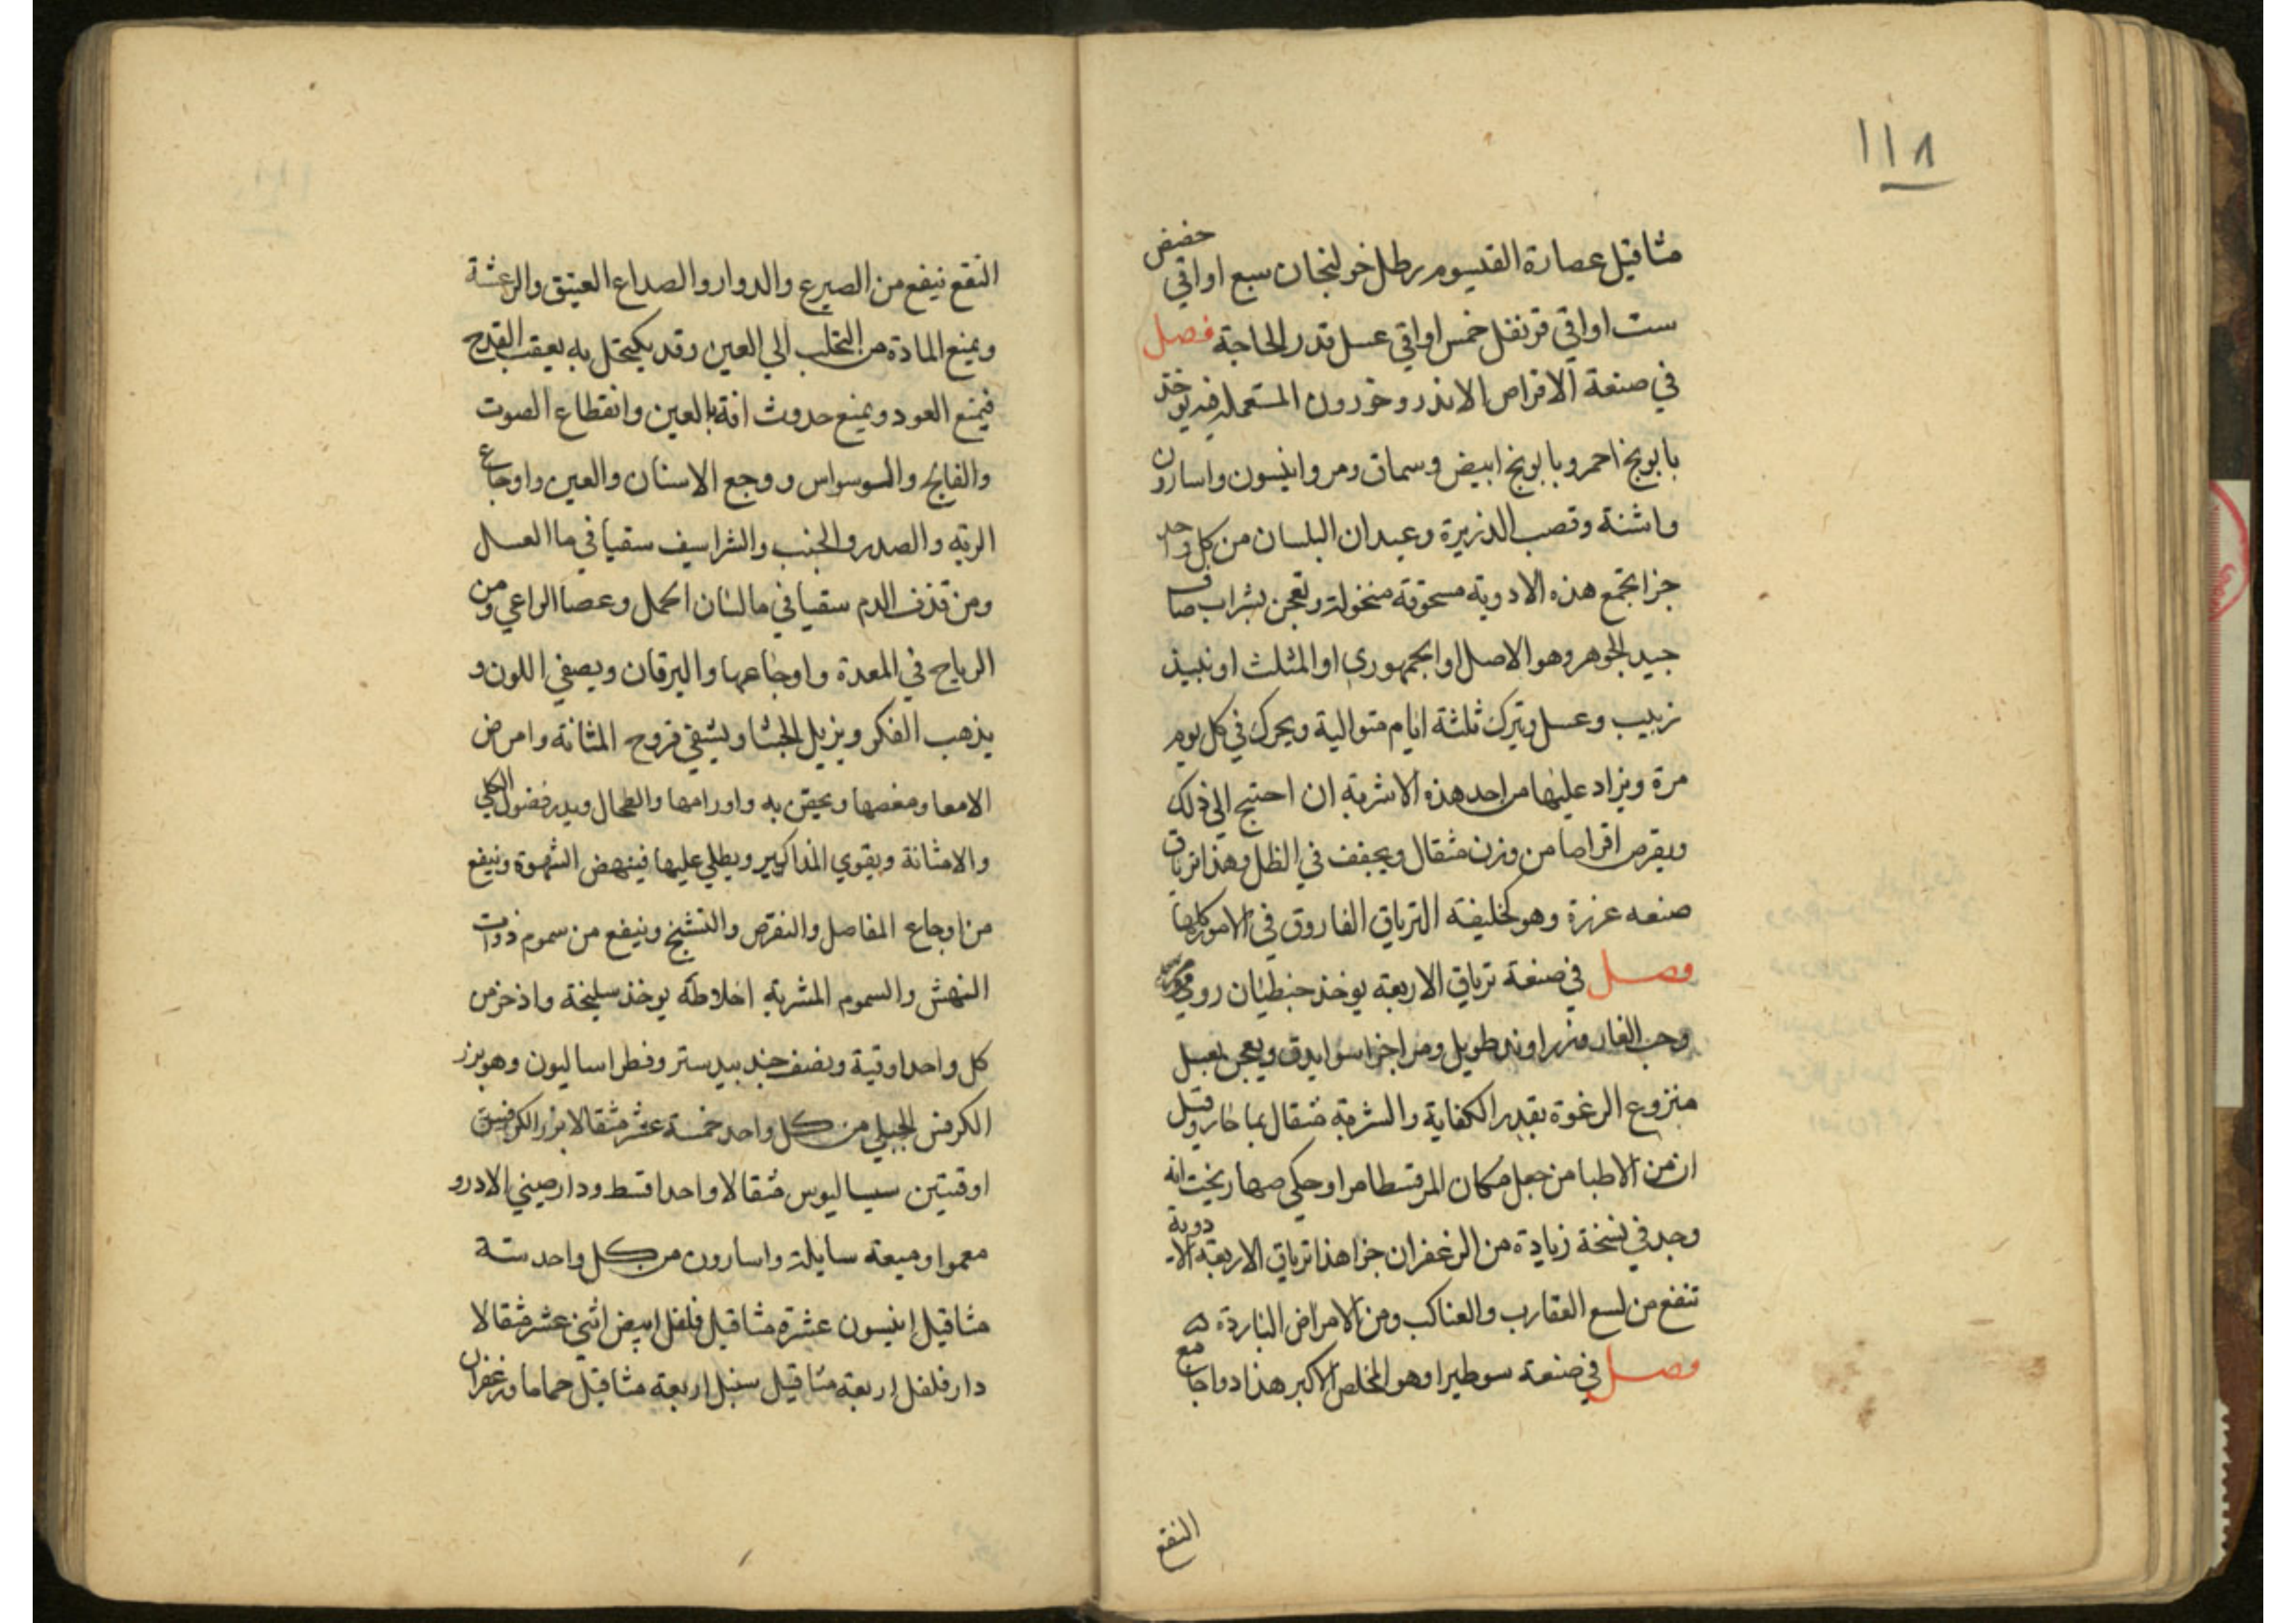 ١١٨
مثاقيل عصارة القيسوم رطل خولنجان سبع اواقي حضض
ست اواقي قرنفل خمس اواقي عسل قدر الحاجة فصل
في صنعة الاقراص الاندروخورون المستعملة فيه يوخذ
بابونج احمر وبابونج ابيض وسماق ومر وانيسون واسارون
واشنة وقصب الذريرة وعيدان البلسان من كل واحد
جزا تجمع هذه الادوية مسحوقة منخولة وتعجن بشراب صاف
جيد الجوهر وهو الاصل او الجمهوري او المثلث او نبيذ
زبيب وعسل ويترك ثلثة ايام متوالية ويحرك في كل يوم
مرة ويزاد عليها من احد هذه الاشربة ان احتيج الي ذلك
ويقرص اقراصا من وزن مثقال ويجفف في الظل وهذا ترياق
صنعه عزرة وهو كخليفة الترياق الفاروق في الامور كلها
فصل في صنعة ترياق الاربعة يوخذ جنطيان رومي
وحب الغار وزراوند طويل ومر اجزا سوا يدق ويعجن بعسل
منزوع الرغوة بقدر الكفاية والشربة مثقال بما حار وقيل
ان من الاطبا من جعل مكان المر قسطا مرا وحكي صهاربخت انه
وجد في نسخة زيادة من الزعفران جزا هذا ترياق الاربعة الادوية
تنفع من لسع العقارب والعناكب ومن الامراض الباردة
فصل في صنعة سوطيرا وهو المخلص الاكبر هذا دوا جامع
النفع
النفع ينفع من الصرع والدوار والصداع العتيق والرعشة
ويمنع المادة من التحلب الي العين وقد يكتحل به بعقب القدح
فيمنع العود ويمنع حدوث افة بالعين وانقطاع الصوت
والفالج والوسواس ووجع الاسنان والعين واوجاع
الرية والصدر والجنب والشراسيف سقيا في ما العسل
ومن قذف الدم سقيا في ما لسان الحمل وعصا الراعي ومن
الرياح في المعدة واوجاعها واليرقان ويصفي اللون و
يذهب الفكر ويزيل الجشا ويشفي قروح المثانة وامراض
الامعا ومغصها ويحقن به واورامها والطحال ويدر فضول الكلي
والامثانة ويقوي المذاكير ويطلي عليها فينهض الشهوة وينفع
من اوجاع المفاصل والنقرص والتشنج وينفع من سموم ذوات
النهش والسموم المشربة اخلاطه يوخذ سليخة واذخر من
كل واحد اوقية ونصف جند بيدستر وفطراساليون وهو بزر
الكرفس الجبلي من كل واحد خمسة عشر مثقالا بزر الكرفس
اوقيتين سيساليوس مثقالا واحدا قسط ودارصيني الادرو
معموا وميعة سايلة واسارون من كل واحد ستة
مثاقيل انيسون عشرة مثاقيل فلفل ابيض اثني عشر مثقالا
دارفلفل اربعة مثاقيل سنبل اربعة مثاقيل حماما وزعفران